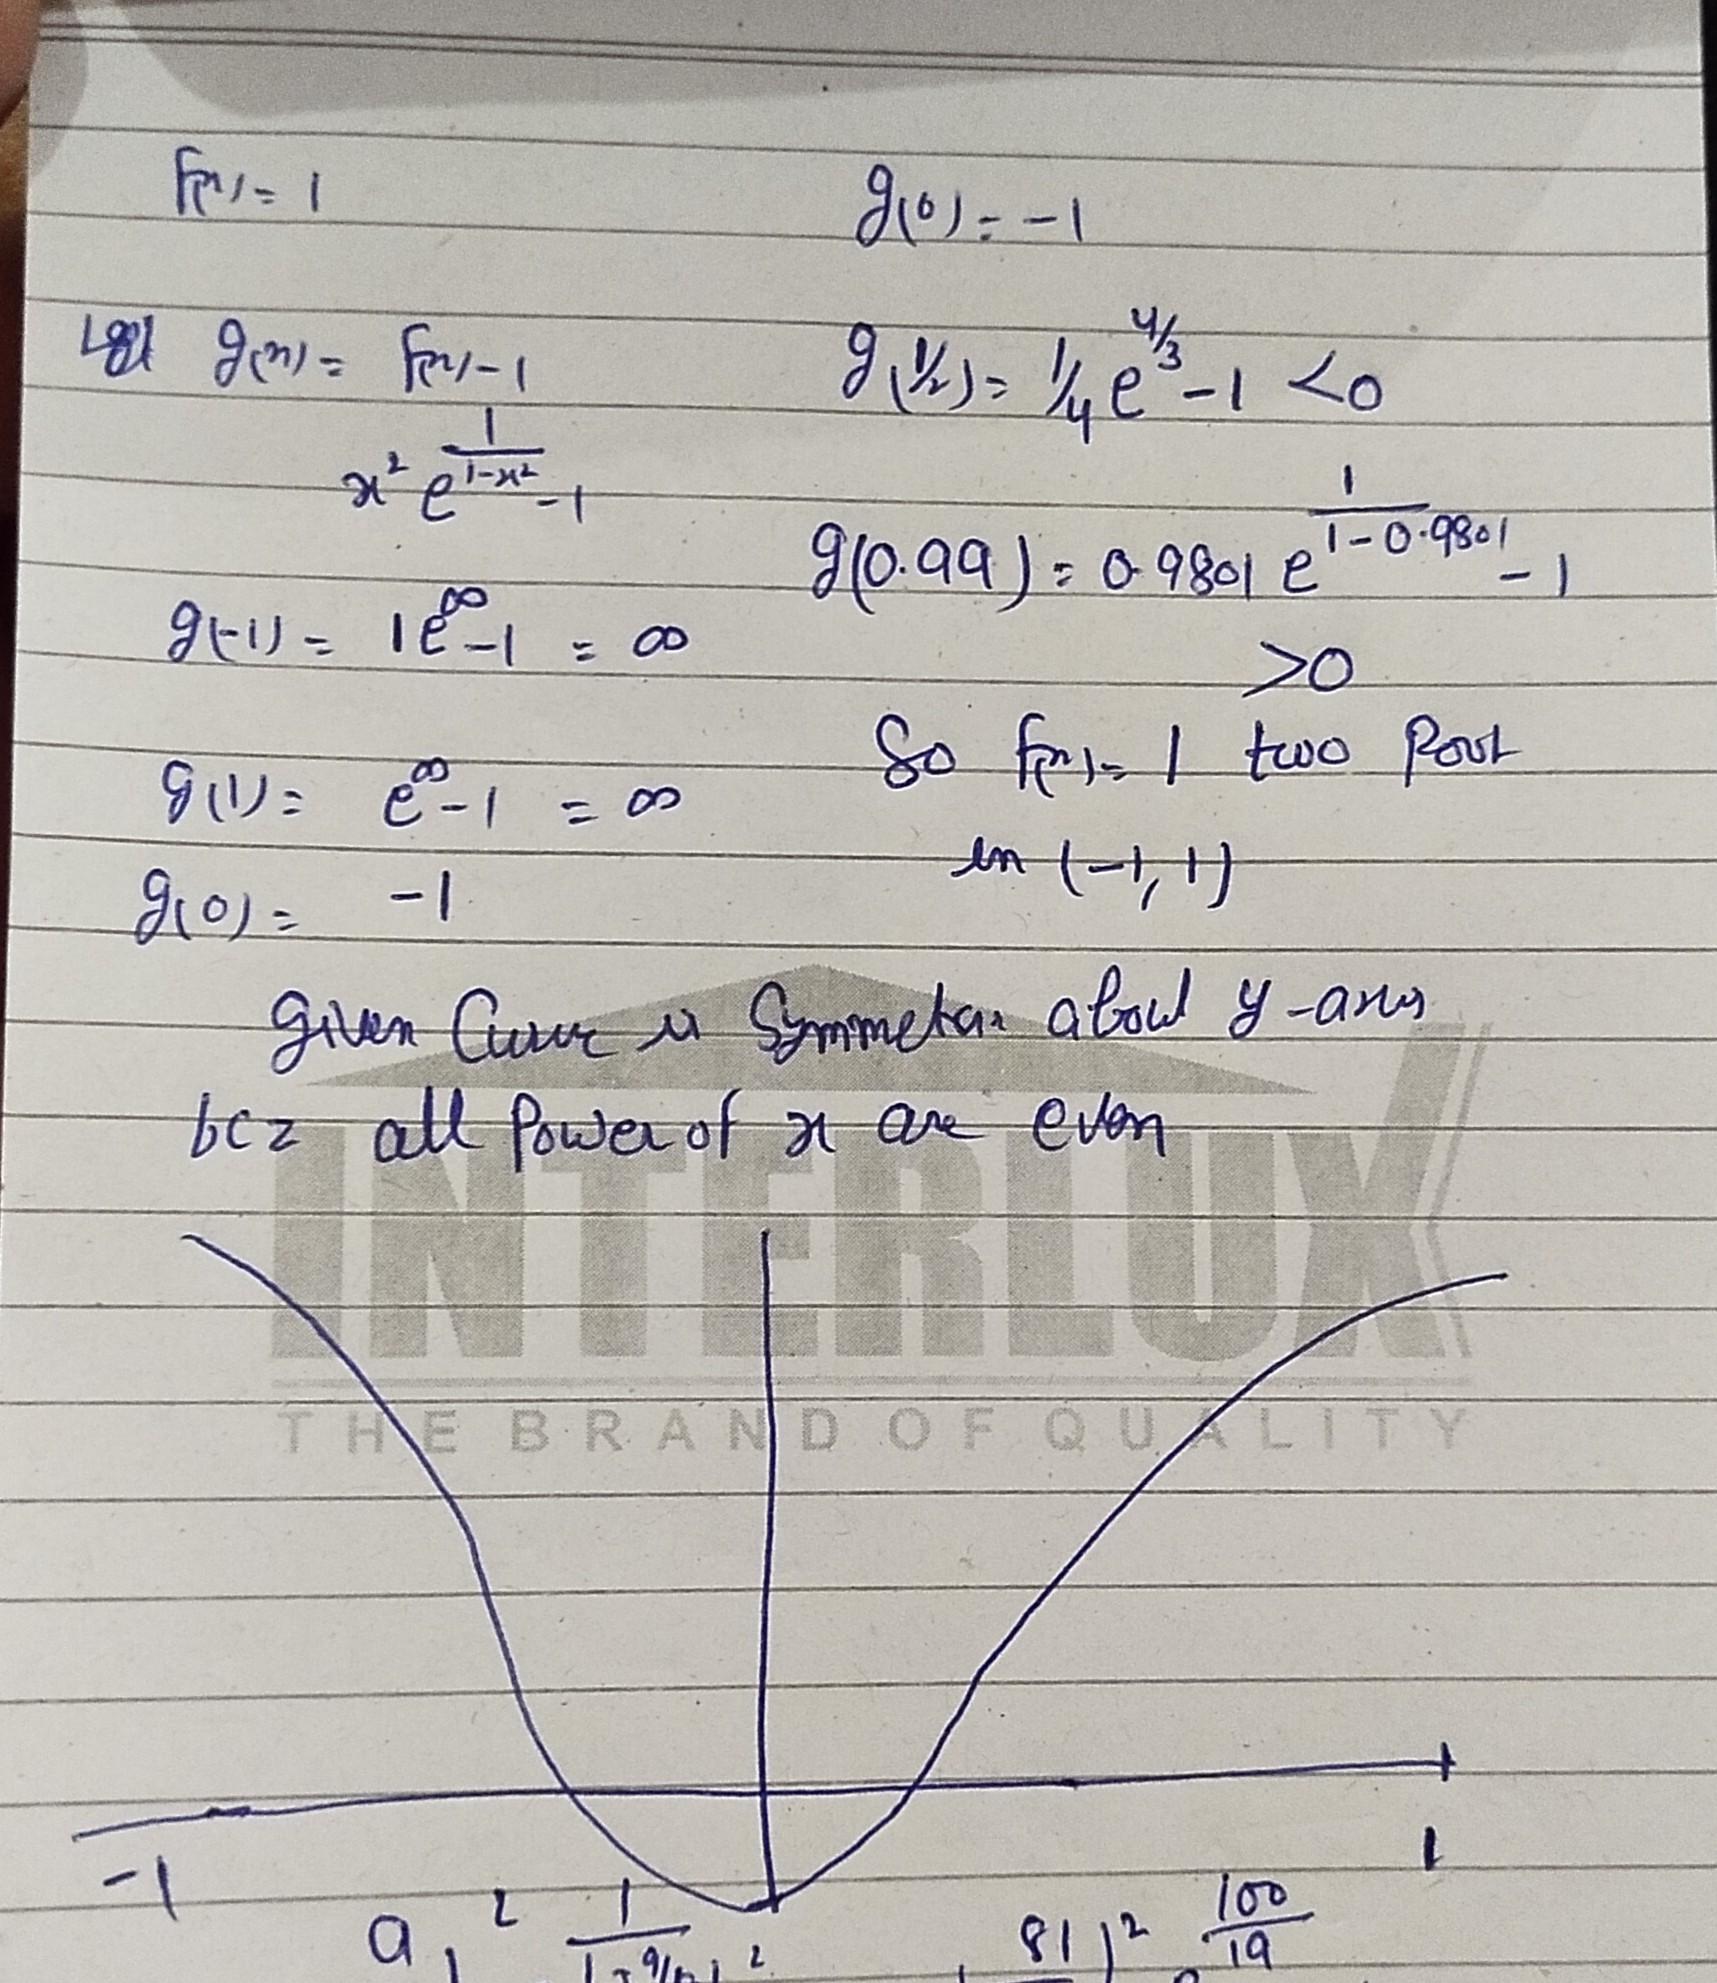 f(x) = 1
g(0) = -1
g(x) = f(x) - 1
x² e^{\frac{1}{1-x²}} - 1
g(-1) = 1e^∞ - 1 = ∞
g(1) = e^∞ - 1 = ∞
g(0) = -1
g(1/2) = 1/4 e^{4/3} - 1 < 0
g(0.99) = 0.9801 e^{\frac{1}{1-0.9801}} - 1
>0
So f(x) = 1 two
in (-1, 1)
given Curve is about y-axis
bcz all Power of x are even
INTERLUX
THE BRAND OF QUALITY
-1
1
81)² 100/19